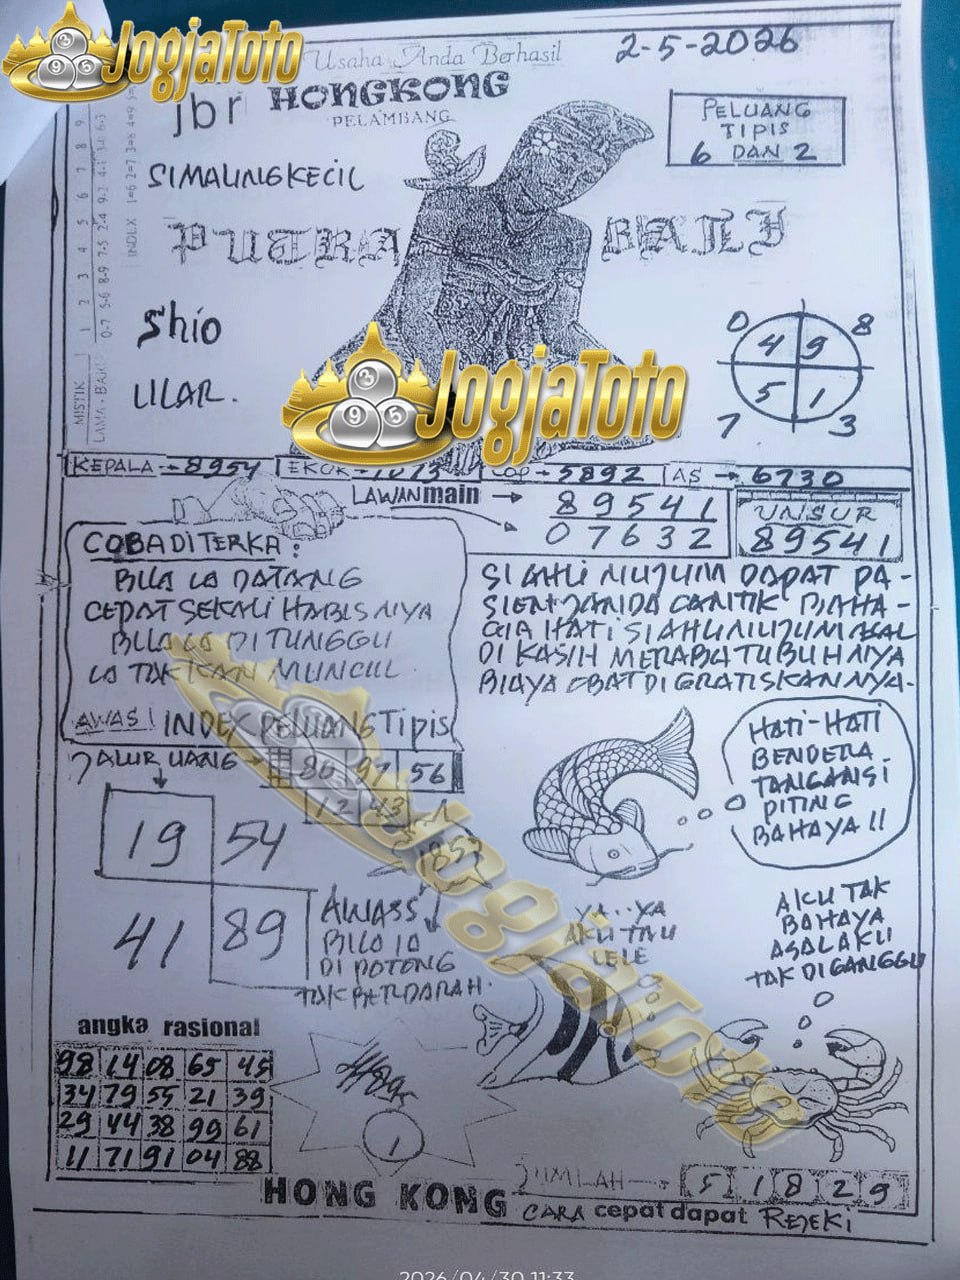 JogjaToto
Usaha Anda Berhasil
2-5-2026
jbr HONGKONG
PELAMBANG
PELUANG
TIPIS
6 DAN 2
SIMALUNGKECIL
PUTRA BALI
Shio
ULAR.
0 8
4 9
5 1
7 3
MISTIK
INDEX 1=6 2=7 3=8 4=9
JogjaToto
KEPALA → 8954 EKOR → 1073 COP → 5892 AS → 6730
LAWAN main → 89541
07632
UNSUR
89541
COBA DITERKA :
BILA IA DATANG
CEPAT SEKALI HABISNYA
BILA IA DI TUNGGU
IA TAK KAN MUNCUL
AWAS! INDEX PELUANG Tipis
SI AHLI NUJUM DAPAT PA-
SIEN JANDA CANTIK BAHA-
GIA HATI SI AHLI NUJUM ASAL
DI KASIH MERABA TUBUHNYA
BIAYA OBAT DI GRATISKANNYA.
JALUR UANG → 86 97 56
12 43
19 54
41 89
1853
HATI-HATI
BENDERA
TANGANSI
PITING
BAHAYA !!
AWASS
BILA IA
DI POTONG
TAK BERDARAH.
YA..YA
AKU TAU
LELE
AKU TAK
BAHAYA
ASAL AKU
TAK DI GANGGU
JogjaToto
angka rasional
98 14 08 65 45
34 79 55 21 39
29 44 38 99 61
11 71 91 04 88
1
JUMLAH → 5 1 8 2 9
HONG KONG CARA cepat dapat REJEKI
2026/04/30 11:33